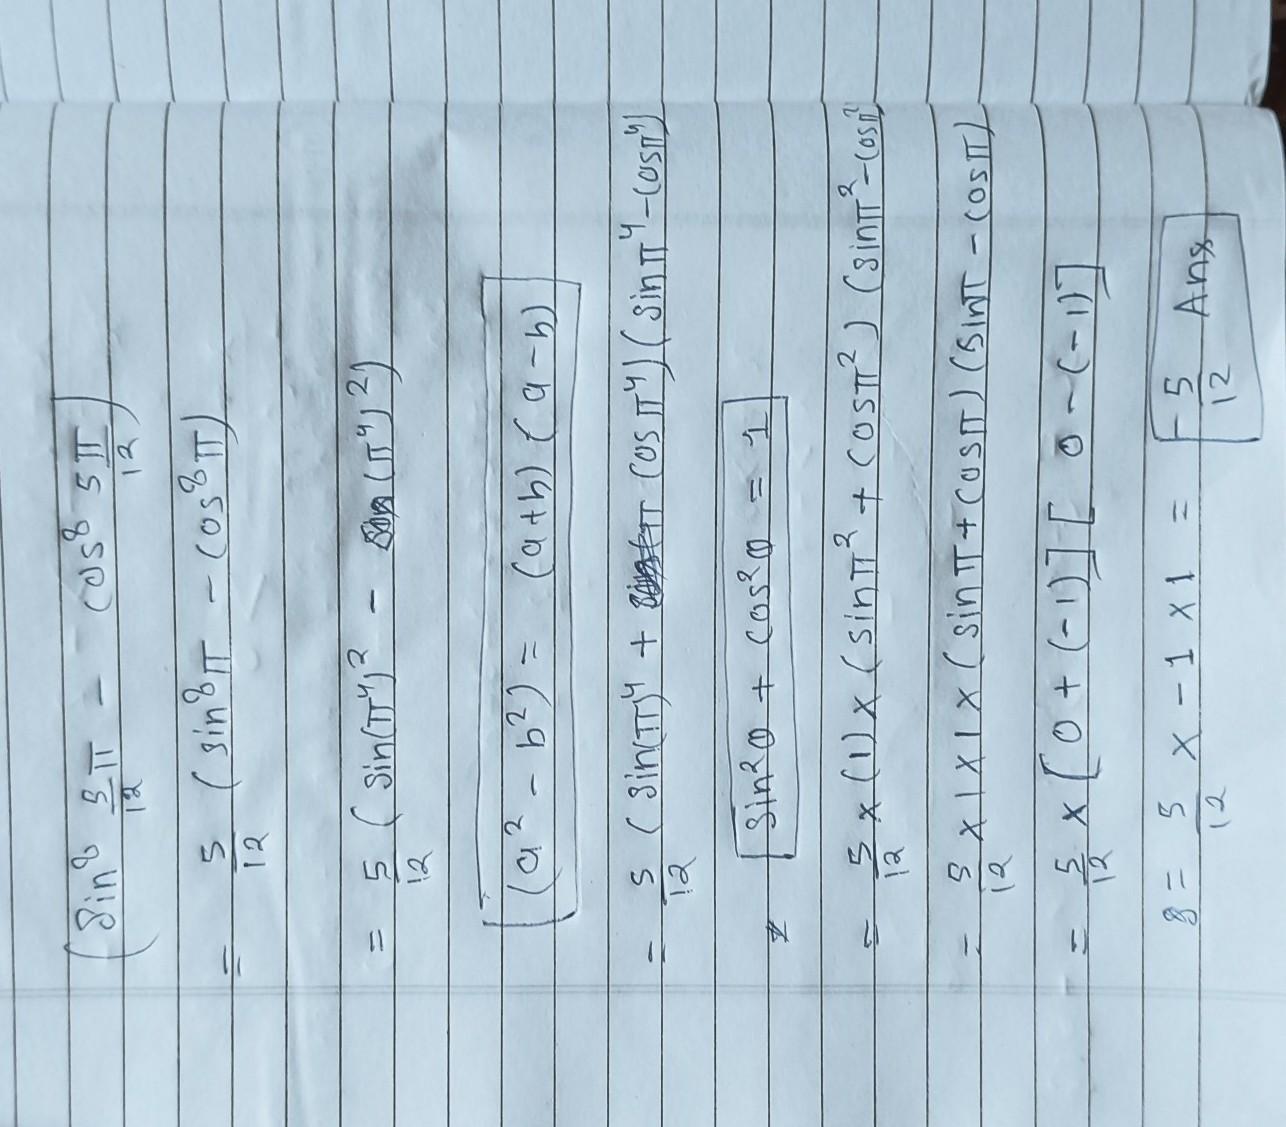 (sin⁸ 5/12 π - cos⁸ 5π/12)
= 5/12 (sin⁸π - cos⁸π)
= 5/12 (sin(π⁴)² - (π⁴)²)
(a² - b²) = (a+b) (a-b)
= 5/12 (sin(π)⁴ + cosπ⁴) (sinπ⁴ - cosπ⁴)
sin²θ + cos²θ = 1
= 5/12 x (1) x (sinπ² + cosπ²) (sinπ² - cosπ²
= 5/12 x 1 x 1 x (sinπ + cosπ) (sinπ - cosπ)
= 5/12 x [0 + (-1)] [0 - (-1)]
8 = 5/12 x -1 x 1 = - 5/12 Ans